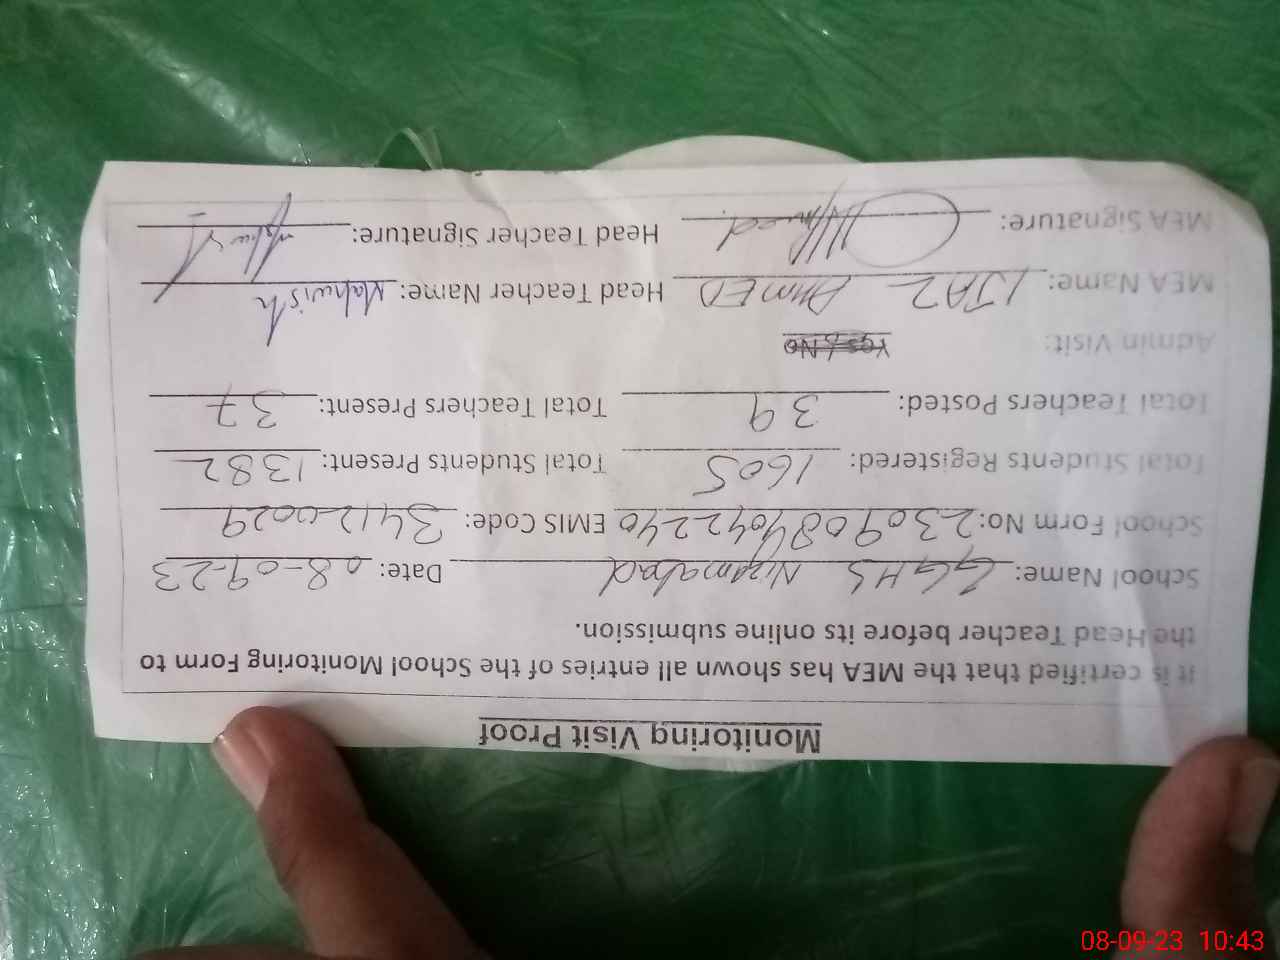 Monitoring Visit Proof
It is certified that the MEA has shown all entries of the School Monitoring Form to
the Head Teacher before its online submission.
School Name: GGHS Nizamabad Date: 08-09-23
School Form No: 2309084042240 EMIS Code: 34120029
Total Students Registered: 1605 Total Students Present: 1382
Total Teachers Posted: 39 Total Teachers Present: 37
Admin Visit: Yes / No
MEA Name: IJAZ AHMED Head Teacher Name: Mahwish
MEA Signature: Head Teacher Signature:
08-09-23 10:43